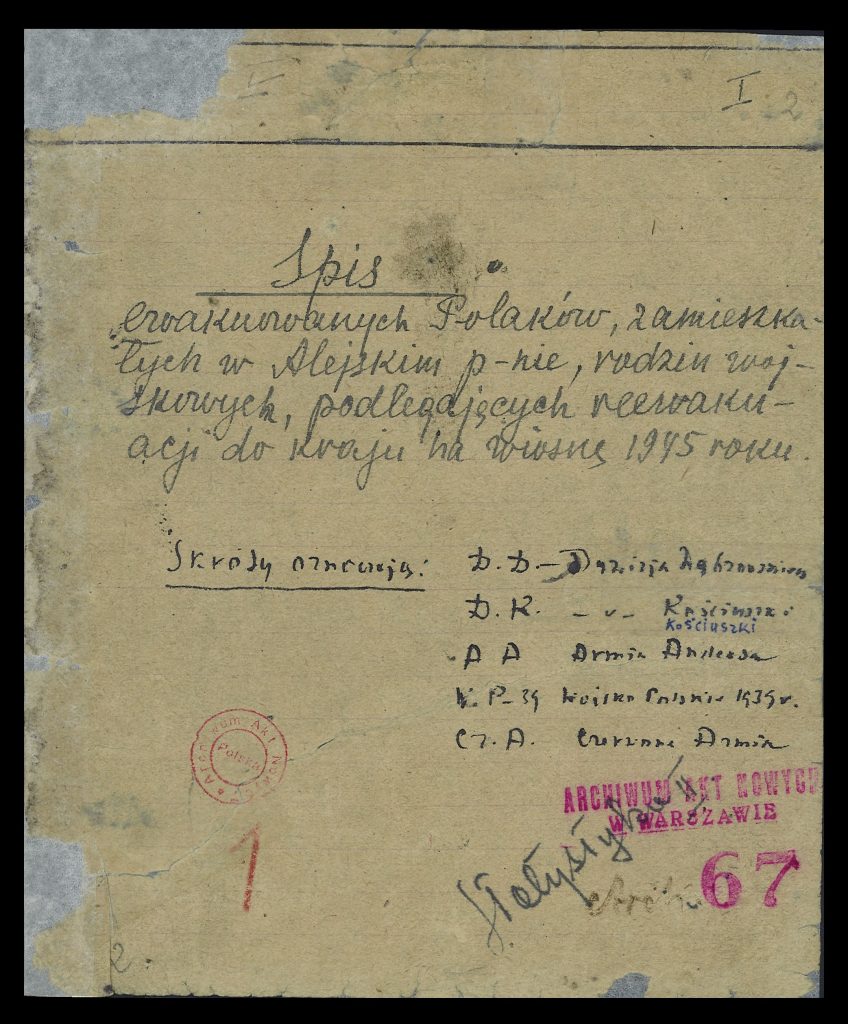 I 2
Spis
ewakuowanych Polaków, zamieszka-
łych w Alejskim p-nie, rodzin woj-
skowych, podlegających reewaku-
acji do kraju na wiosnę 1945 roku.
Skróty oznaczają: D. D. – Dywizja Dąbrowskiego
D. K. – „ – Kościuszki
Kościuszki
A A Armia Andersa
W. P-39 Wojsko Polskie 1939 r.
Cz. A. Czerwona Armia
Archiwum Akt Nowych
Polska
ARCHIWUM AKT NOWYCH
W WARSZAWIE
67
1
2.